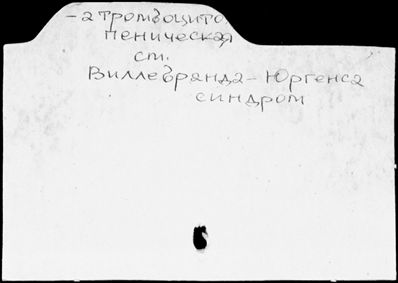 - атромбоцито-
пеническая
см.
Виллебранда - Юргенса
синдром